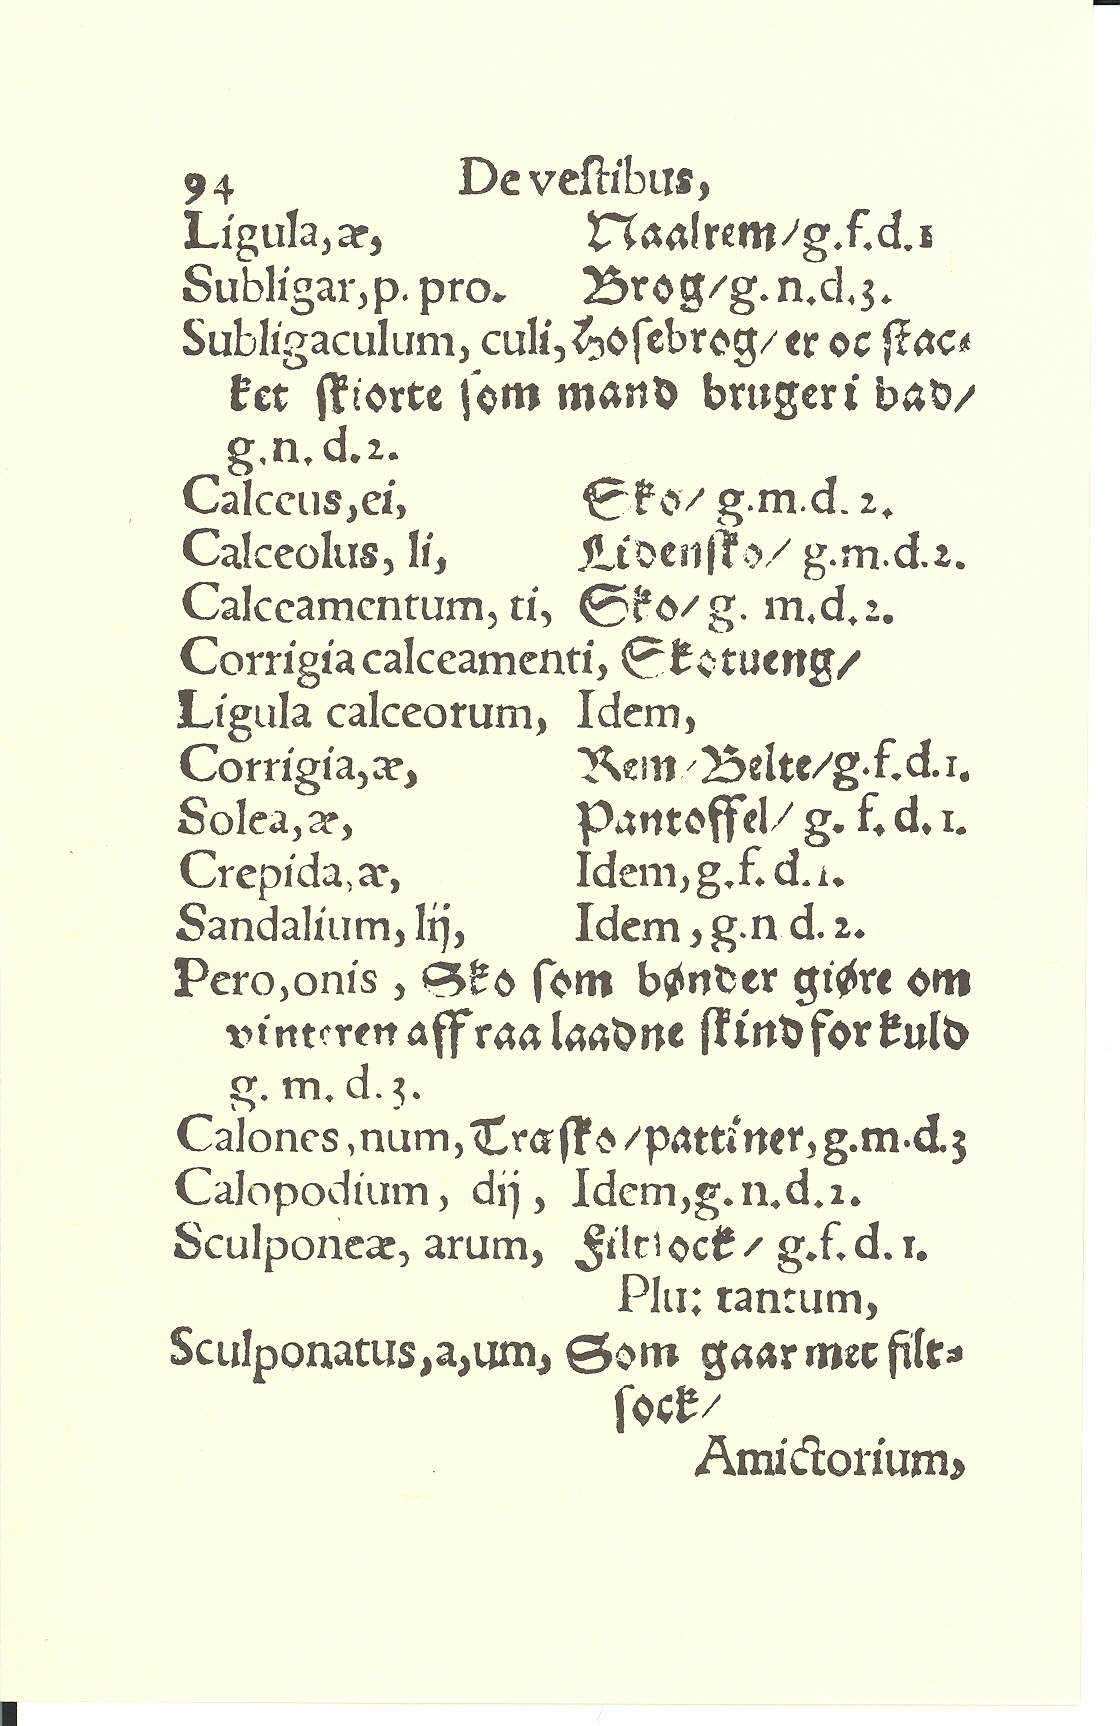 94 De vestibus,
Ligula, æ, Naalrem/ g.f.d.1
Subligar, p. pro. Brog/ g. n.d.3.
Subligaculum, culi, Hosebrog/ er oc stac-
ket skiorte som mand bruger i bad/
g.n. d.2.
Calceus, ei, Sko/ g.m.d. 2.
Calceolus, li, Lidensko/ g.m.d.2.
Calceamentum, ti, Sko/ g. m.d.2.
Corrigia calceamenti, Skotueng/
Ligula calceorum, Idem,
Corrigia, æ, Rem/ Belte/ g.f.d.1.
Solea, æ, Pantoffel/ g. f. d. 1.
Crepida, æ, Idem, g.f. d.1.
Sandalium, lij, Idem, g.n d. 2.
Pero, onis, Sko som bønder giøre om
vinteren aff raa laadne skind for kuld
g. m. d.3.
Calones, num, Træsko/ pattiner, g.m.d.3
Calopodium, dij, Idem, g. n.d.2.
Sculponeæ, arum, Filtsock/ g.f. d. 1.
Plu: tantum,
Sculponatus, a, um, Som gaar met filt-
sock/
Amictorium,